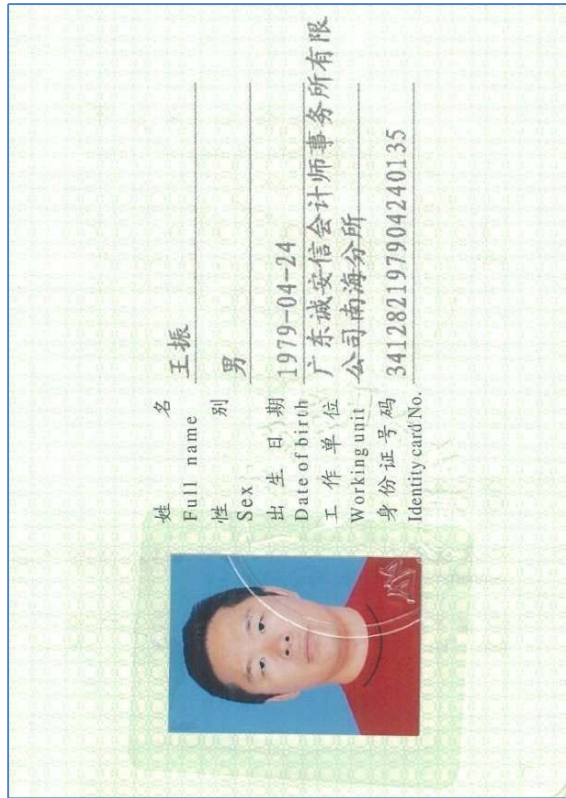 姓名 王振
Full name
性别 男
Sex
出生日期 1979-04-24
Date of birth
工作单位 广东诚安信会计师事务所有限
Working unit 公司南海分所
身份证号码 341282197904240135
Identity card No.